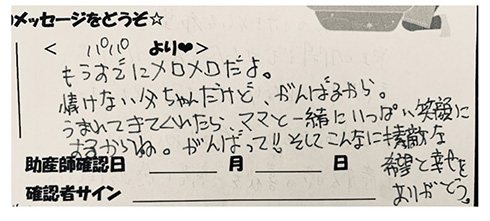 メッセージをどうぞ☆
< パパ より♥>
もうすでにメロメロだよ。
情けない父ちゃんだけど、がんばるから。
うまれてきてくれたら、ママと一緒にいっぱい笑顔に
するからね。がんばって!! そしてこんなに素敵な
希望と幸せを
ありがとう。
助産師確認日 ＿＿＿ 月 ＿＿＿ 日
確認者サイン